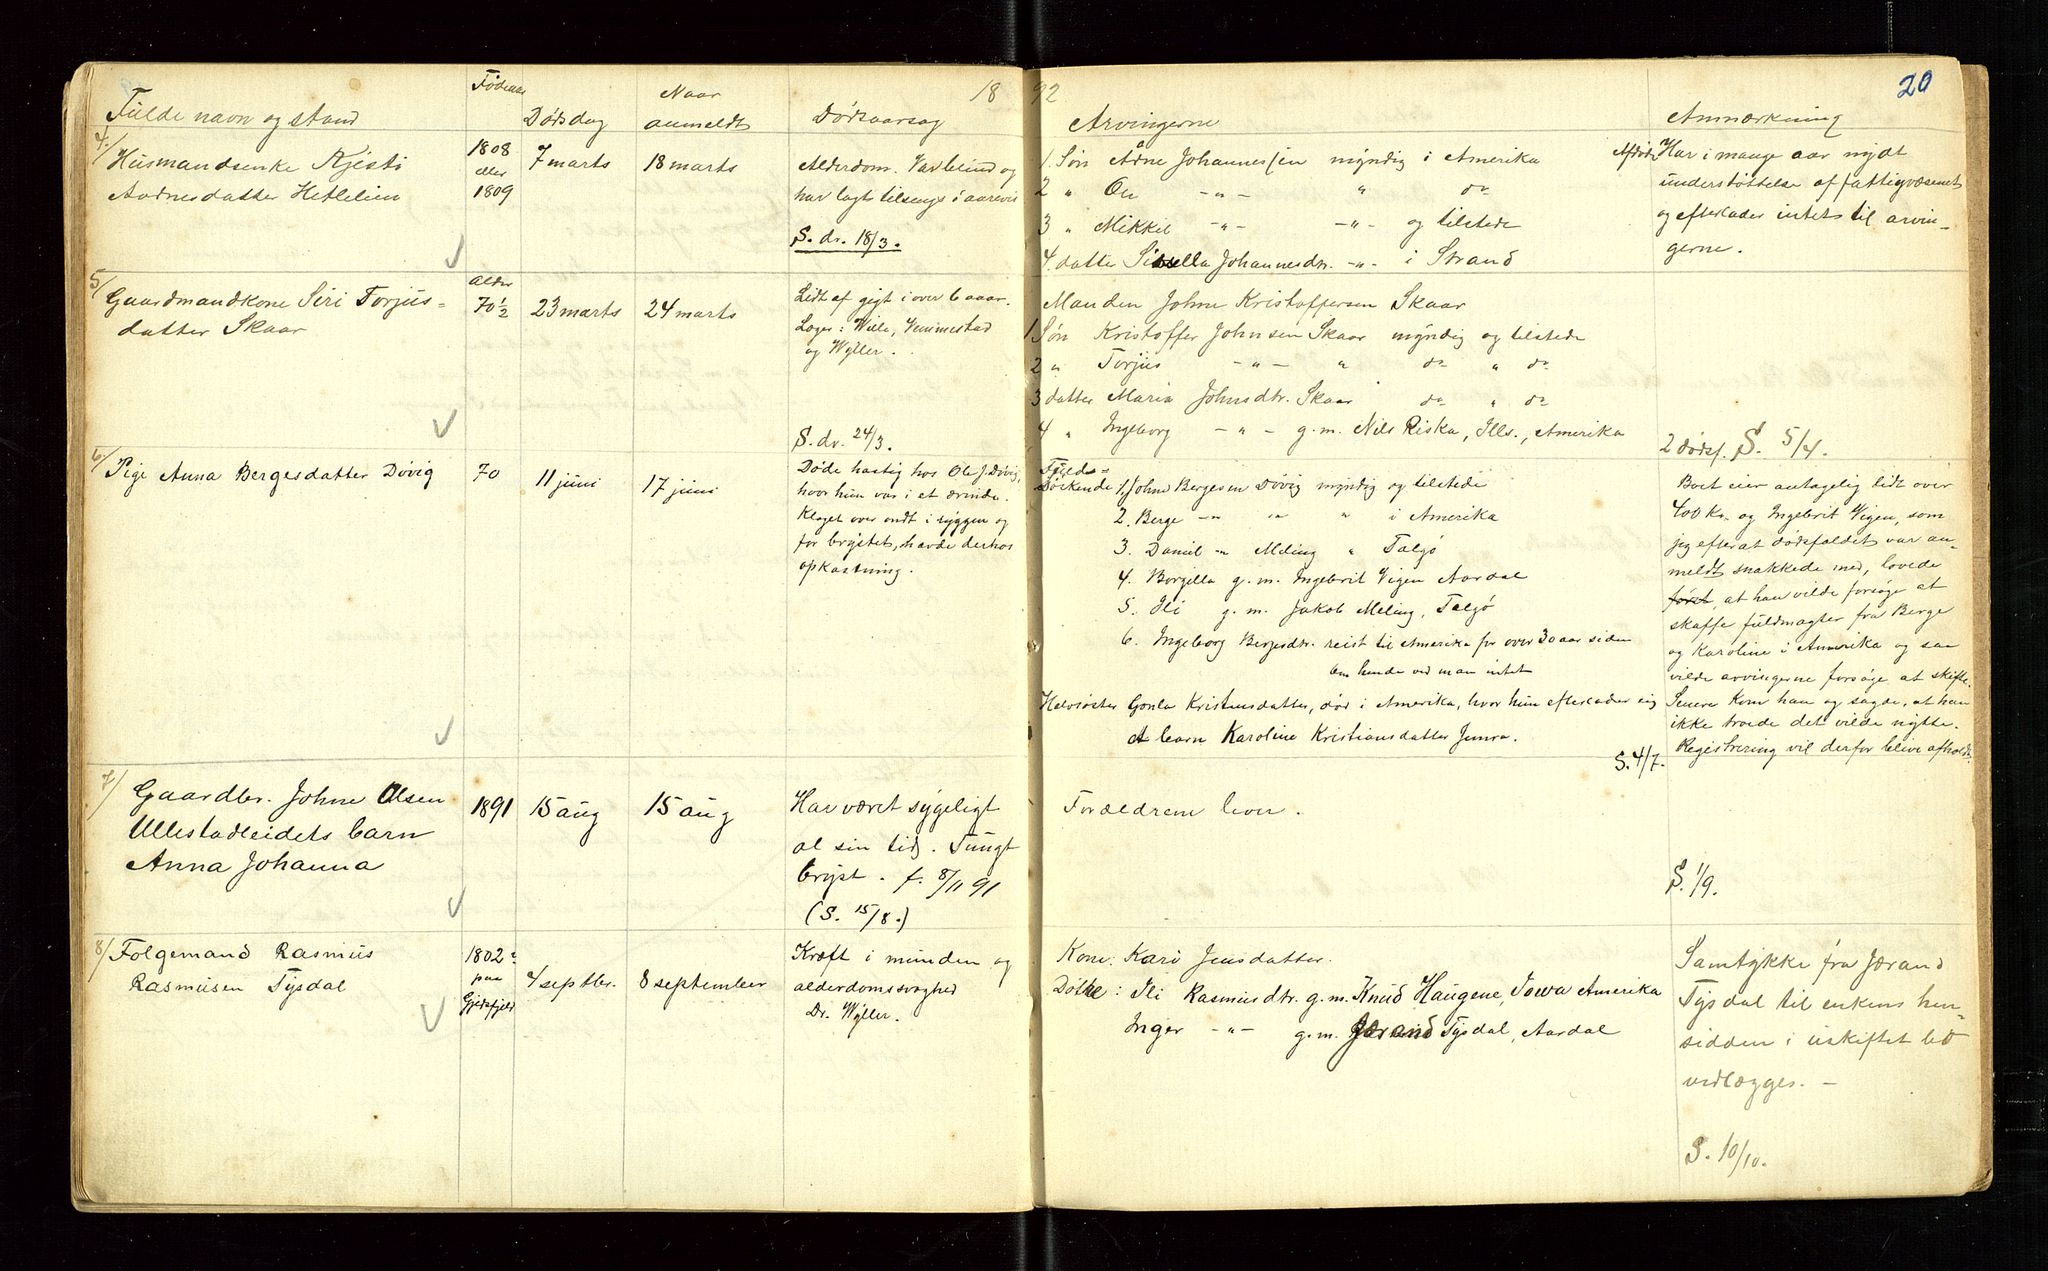 18 92
20
Fulde navn og stand
Fødeaar
Dødsdag
Naar
anmeldt
Dødsaarsag
Arvingerne
Anmærkning
4/
Husmandsenke Kjesti
Aadnesdatter Hetlelien
1808
eller
1809
7 marts
18 marts
Alderdom. Var blind og
har lagt tilsengs i aarevis
S. dr. 18/3.
1. Søn Ådne Johannessen myndig i Amerika
2 " Ole -"- " do
3 " Mikkel -"- -"- og tilstede
4. datter Sissella Johannesdtr. -"- i Strand
Har i mange aar nydt
understøttelse af fattigvæsenet
og efterlader intet til arvin-
gerne.
5/
Gaardmandkone Siri Torjus-
datter Skaar
Alder
70 1/2
23 marts
24 marts
Lidt af gigt i over 6 aaar.
Læger: Wille, Vemmestad
og Wyller.
S. dr. 24/3.
Manden Johne Kristoffersen Skaar
1 Søn Kristoffer Johnsen Skaar myndig og tilstede
2 " Torjus -"- " do " do
3 datter Maria Johnsdtr. Skaar do " do
4 " Ingeborg -"- g.m. Nils Riska, Ills., Amerika
2 dødsf. S. 5/4.
6/
Pige Anna Bergesdatter Døvig
70
11 juni
17 juni
Døde hastig hos Ole J. Døvig,
hvor hun var i et ærinde.
Klaget over ondt i ryggen og
for brystet, havde derhos
opkastning.
Fulds-
Søskende 1, Johne Bergesen Døvig myndig og tilstede
2. Berge -"- " " i Amerika
3. Daniel -"- Meling " Talgø
4. Borgilla g.m. Ingebrit Vigen Aardal
5. Ili g.m. Jakob Meling, Talgø
6. Ingeborg Bergesdtr. reist til Amerika for over 30 aar siden
Om hende ved man intet
Halvsøster Gonla Kristensdatter, død i Amerika, hvor hun efterlader sig
et barn Karoline Kristiansdatter Jemra.
S. 4/7.
Boet eier antagelig lidt over
400 Kr. og Ingebrit Vigen, som
jeg efterat dødsfaldet var an-
meldt snakkede med, lovede
først, at han vilde forsøge at
skaffe fuldmagter fra Berge
og Karoline i Amerika og saa
vilde arvingerne forsøge at skifte.
Senere kom han og sagde, at han
ikke troede det vilde nytte.
Registrering vil derfor blive afholdt.
7/
Gaardbr. Johne Olsen
Ullestadleidets barn
Anna Johanna
1891
15 aug
15 aug
Har været sygeligt
al sin tid. Tungt
bryst. f. 8/11 91
(S. 15/8.)
Forældrene lever.
S. 1/9.
8/
Folgemand Rasmus
Rasmusen Tysdal
1802
paa
Gjeisfjeld
4 septbr.
8 september
Kræft i munden og
alderdomssvaghed
Dr. Wyller.
Kone: Kari Jensdatter.
Døtre: Ili Rasmusdtr. g.m. Knud Haugene, Iowa Amerika
Inger -"- g.m. Jærand Tysdal, Aardal
Samtykke fra Jærand
Tysdal til enkens hen-
sidden i uskiftet bo
vedlægges. -
S. 10/10.